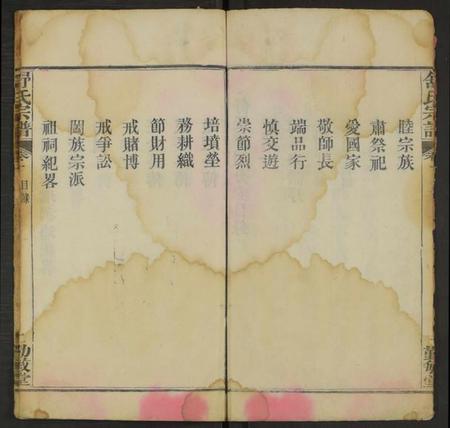 舒氏宗譜
睦宗族
肅祭祀
愛國家
敬師長
端品行
慎交遊
崇節烈
培墳塋
務耕織
節財用
戒賭博
戒爭訟
闔族宗派
祖祠紀畧
舒氏宗譜
目錄